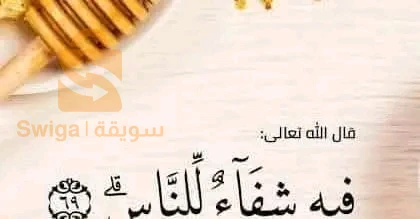 سويقة | Swiga
قال الله تعالى:
فِيهِ شِفَآءٌ لِّلنَّاسِ ۗ ٦٩